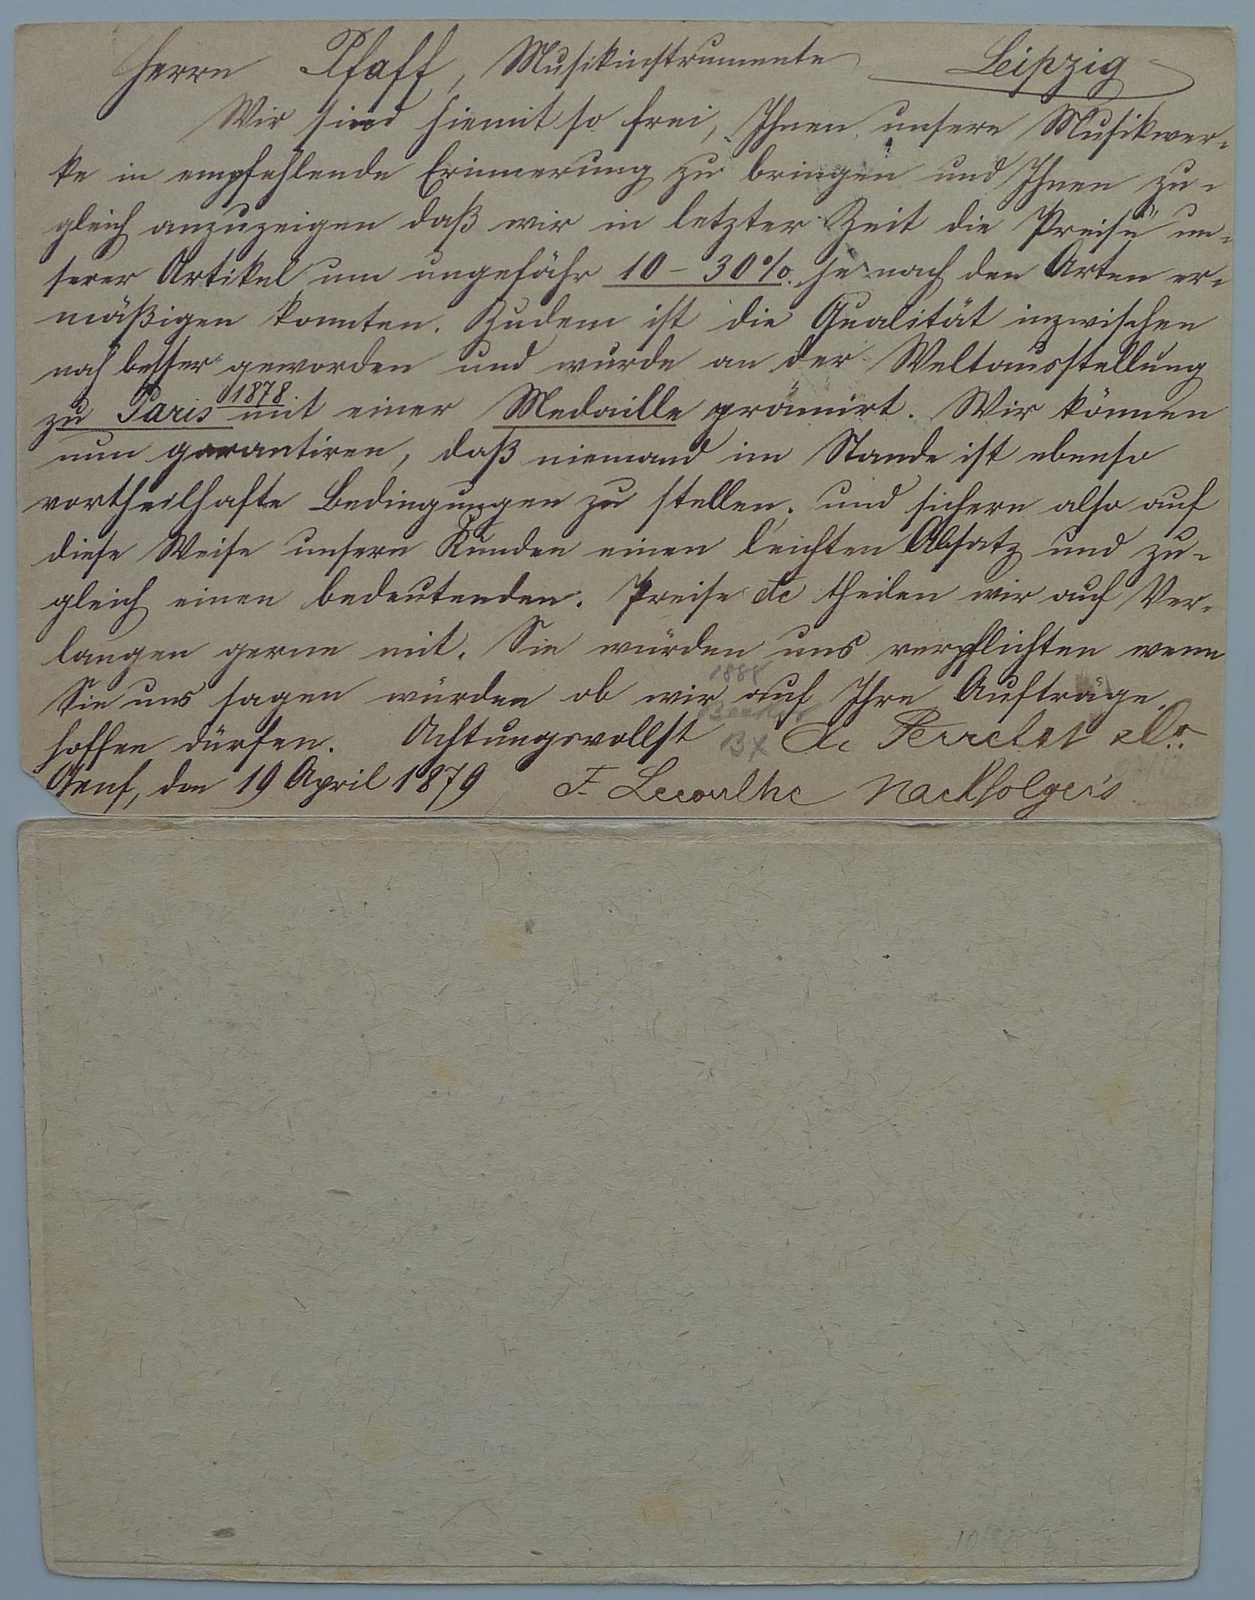 Herrn Pfaff, Musikinstrumente Leipzig
Wir sind hiemit so frei, Ihnen unsere Musikwer-
ke in empfehlende Erinnerung zu bringen und Ihnen zu-
gleich anzuzeigen daß wir in letzter Zeit die Preise un-
serer Artikel um ungefähr 10 – 30% je nach den Arten er-
mäßigen konnten. Zudem ist die Qualität inzwischen
noch besser geworden und wurde an der Weltausstellung
zu Paris 1878 mit einer Medaille prämirt. Wir können
nun garantiren, daß niemand im Stande ist ebenso
vortheilhafte Bedingungen zu stellen, und sichern also auf
diese Weise unsern Kunden einen leichten Absatz und zu-
gleich einen bedeutenden. Preise etc theilen wir auf Ver-
langen gerne mit. Sie würden uns verpflichten wenn
Sie uns sagen würden ob wir auf Ihre Aufträge
1888
hoffen dürfen. Achtungsvollst
BX
Genf, den 19 April 1879 F. Lecoultre Nachfolger's